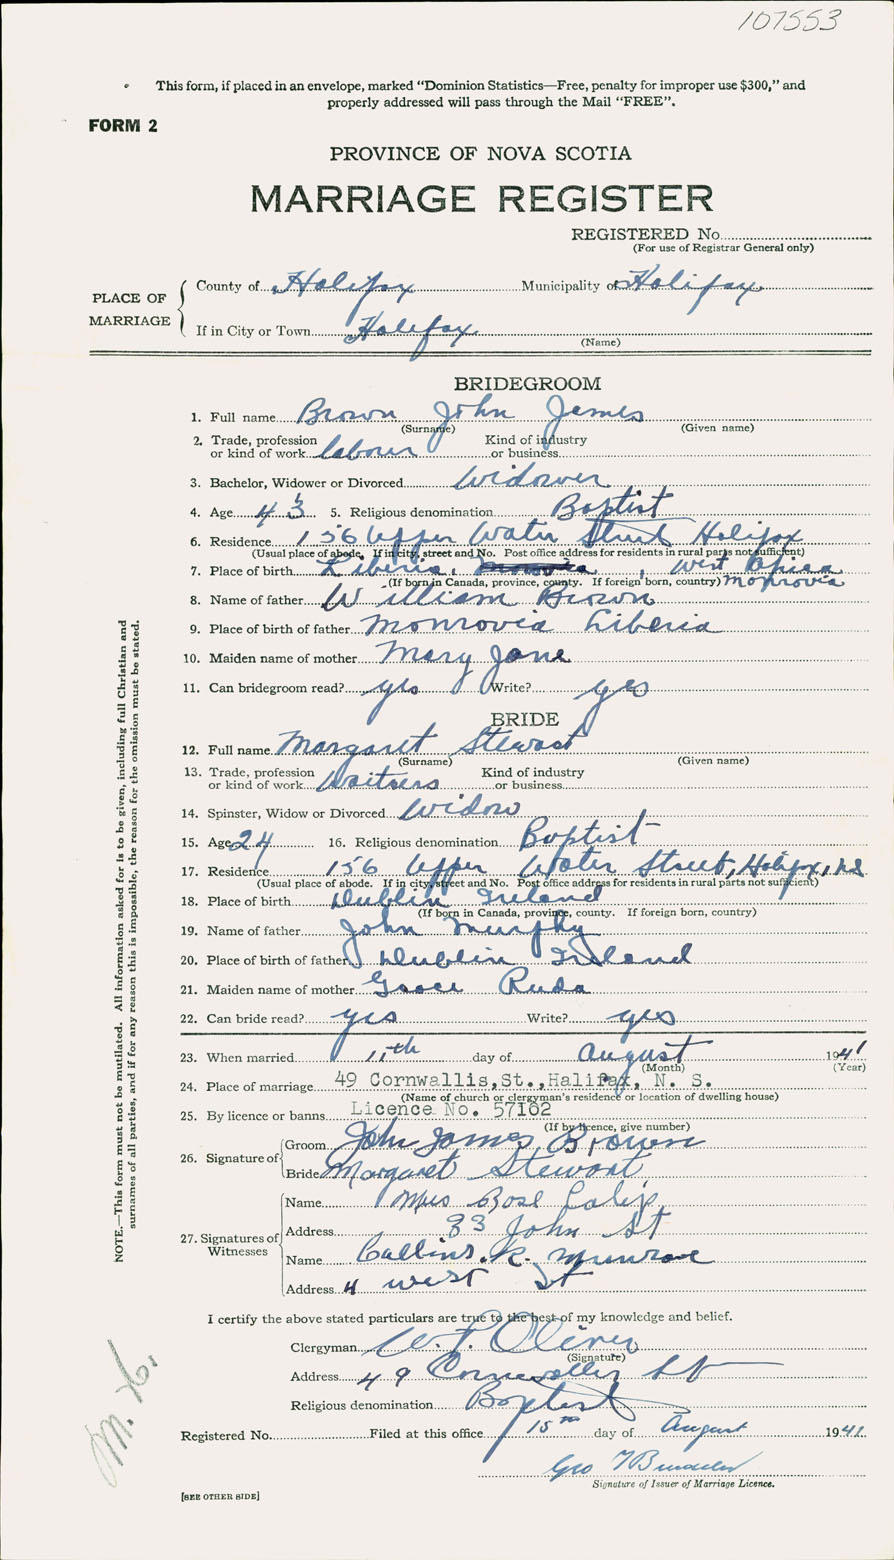 107553
This form, if placed in an envelope, marked “Dominion Statistics—Free, penalty for improper use $300,” and
properly addressed will pass through the Mail “FREE”.
FORM 2
PROVINCE OF NOVA SCOTIA
MARRIAGE REGISTER
REGISTERED No.
(For use of Registrar General only)
PLACE OF MARRIAGE
County of Halifax Municipality of Halifax
If in City or Town Halifax
(Name)
BRIDEGROOM
1. Full name Brown John James
(Surname) (Given name)
2. Trade, profession or kind of work labour Kind of industry or business
3. Bachelor, Widower or Divorced Widower
4. Age 43 5. Religious denomination Baptist
6. Residence 156 Upper Water Street Halifax
(Usual place of abode. If in city, street and No. Post office address for residents in rural parts not sufficient)
7. Place of birth Liberia, West Africa
(If born in Canada, province, county. If foreign born, country) Monrovia
8. Name of father William Brown
9. Place of birth of father Monrovia Liberia
10. Maiden name of mother Mary Jane
11. Can bridegroom read? yes Write? yes
BRIDE
12. Full name Margaret Stewart
(Surname) (Given name)
13. Trade, profession or kind of work Waitress Kind of industry or business
14. Spinster, Widow or Divorced Widow
15. Age 24 16. Religious denomination Baptist
17. Residence 156 Upper Water Street, Halifax, NS
(Usual place of abode. If in city, street and No. Post office address for residents in rural parts not sufficient)
18. Place of birth Dublin Ireland
(If born in Canada, province, county. If foreign born, country)
19. Name of father John Murphy
20. Place of birth of father Dublin Ireland
21. Maiden name of mother Grace
22. Can bride read? yes Write? yes
23. When married 11th day of August 1941
(Month) (Year)
24. Place of marriage 49 Cornwallis,St.,Halifax, N. S.
(Name of church or clergyman's residence or location of dwelling house)
25. By licence or banns Licence No. 57162
(If by licence, give number)
26. Signature of
Groom John James Brown
Bride Margaret Stewart
27. Signatures of Witnesses
Name Mrs Rose
Address 33 John St
Name R. Munroe
Address 4 west St
I certify the above stated particulars are true to the best of my knowledge and belief.
Clergyman W. P. Oliver
(Signature)
Address 49 Cornwallis St
Religious denomination Baptist
Registered No. Filed at this office 15th day of August 1941
Geo
Signature of Issuer of Marriage Licence.
[SEE OTHER SIDE]
NOTE.—This form must not be mutilated. All information asked for is to be given, including full Christian and
surnames of all parties, and if for any reason this is impossible, the reason for the omission must be stated.